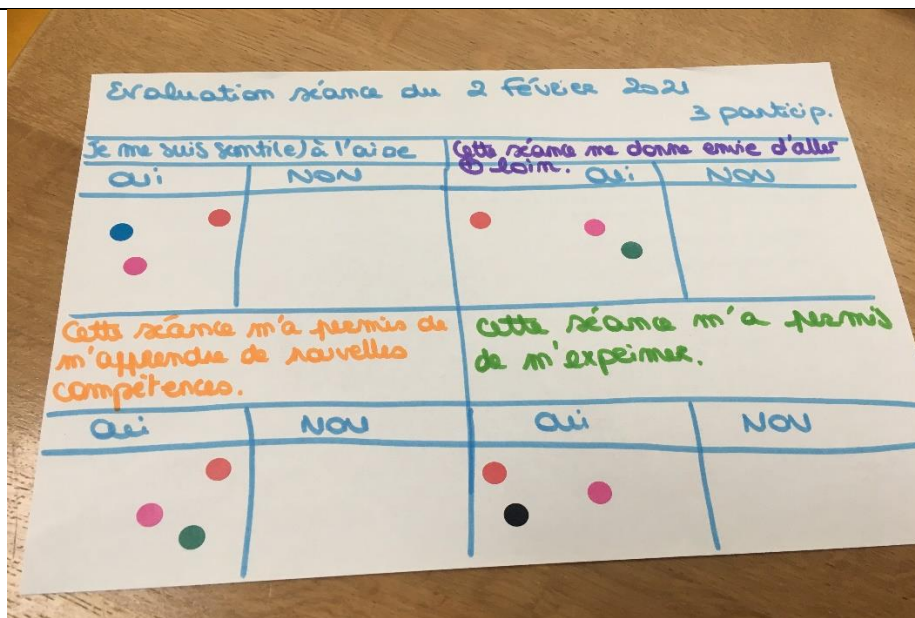 Evaluation séance du 2 Février 2021
3 particip.
Je me suis senti(e) à l'aise
Oui NON
Cette séance me donne envie d'aller
⊕ loin. Oui NON
Cette séance m'a permis de
m'apprendre de nouvelles
compétences.
Oui NON
Cette séance m'a permis
de m'exprimer.
Oui NON